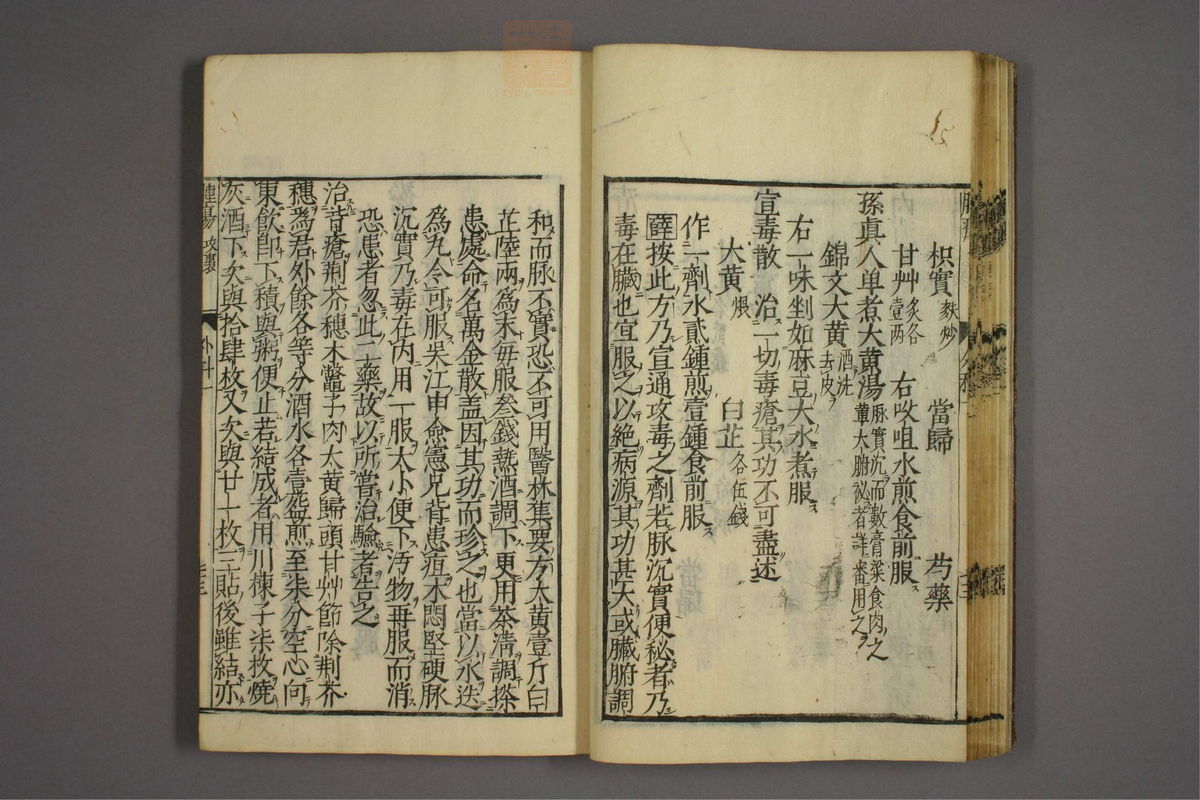 枳實 麩炒 當歸 芍藥
甘艸 炙各壹两 右㕮咀水煎食前服
孫真人单煮大黄湯 脉實沉而數膏粱食肉之軰大腑祕者詳審用之
錦文大黄 酒洗去皮
右一味剉如麻豆大水煮服
宣毒散 治一切毒瘡其功不可盡述
大黄 煨 白芷 各伍錢
作一劑水貳鍾煎壹鍾食前服
薛按此方乃宣通攻毒之劑若脉沉實便秘者乃
毒在臟也宜服之以絶病源其功甚大或臟腑調
和而脉不實恐不可用醫林集要方大黄壹斤白
芷陸兩爲末毎服叁錢𤍠酒調下更用茶淸調搽
患處命名萬金散盖因其功而珍之也當以水迭
爲丸令可服吳江申僉憲兄背患疽不悶堅硬脉
沉實乃毒在内用一服大小便下汚物再服而消
恐患者忽此二藥故以所嘗治驗者告之
治背瘡荆芥穗木鱉子肉大黄歸頭甘艸節除荆芥
穗爲君外餘各等分酒水各壹𥁐煎至柒分空心向
東飲卽下積與粥便止若結成者用川楝子柒枚燒
灰酒下次與拾肆枚又次與廿一枚三貼後雖結亦
外科